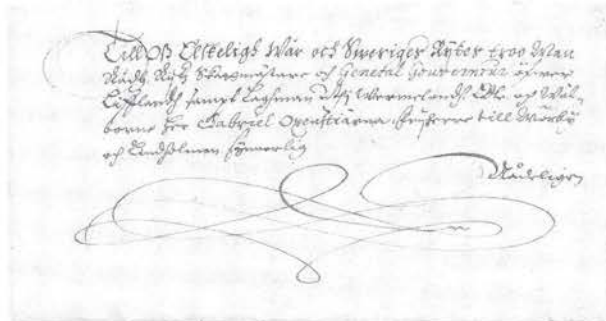 Till Oß Elskeligh Wår och Sweriges Rykes troo Man
Rådh, Rykz Skattmästare och General Gouverneur öfwer
Lifflandh sampt Laghman uthi Wermelandh, Edle och Wäl-
borne Her Gabriel Oxenstierna, Frijherre till Mörby
och Lindholmen, synnerlig
Nådeligen